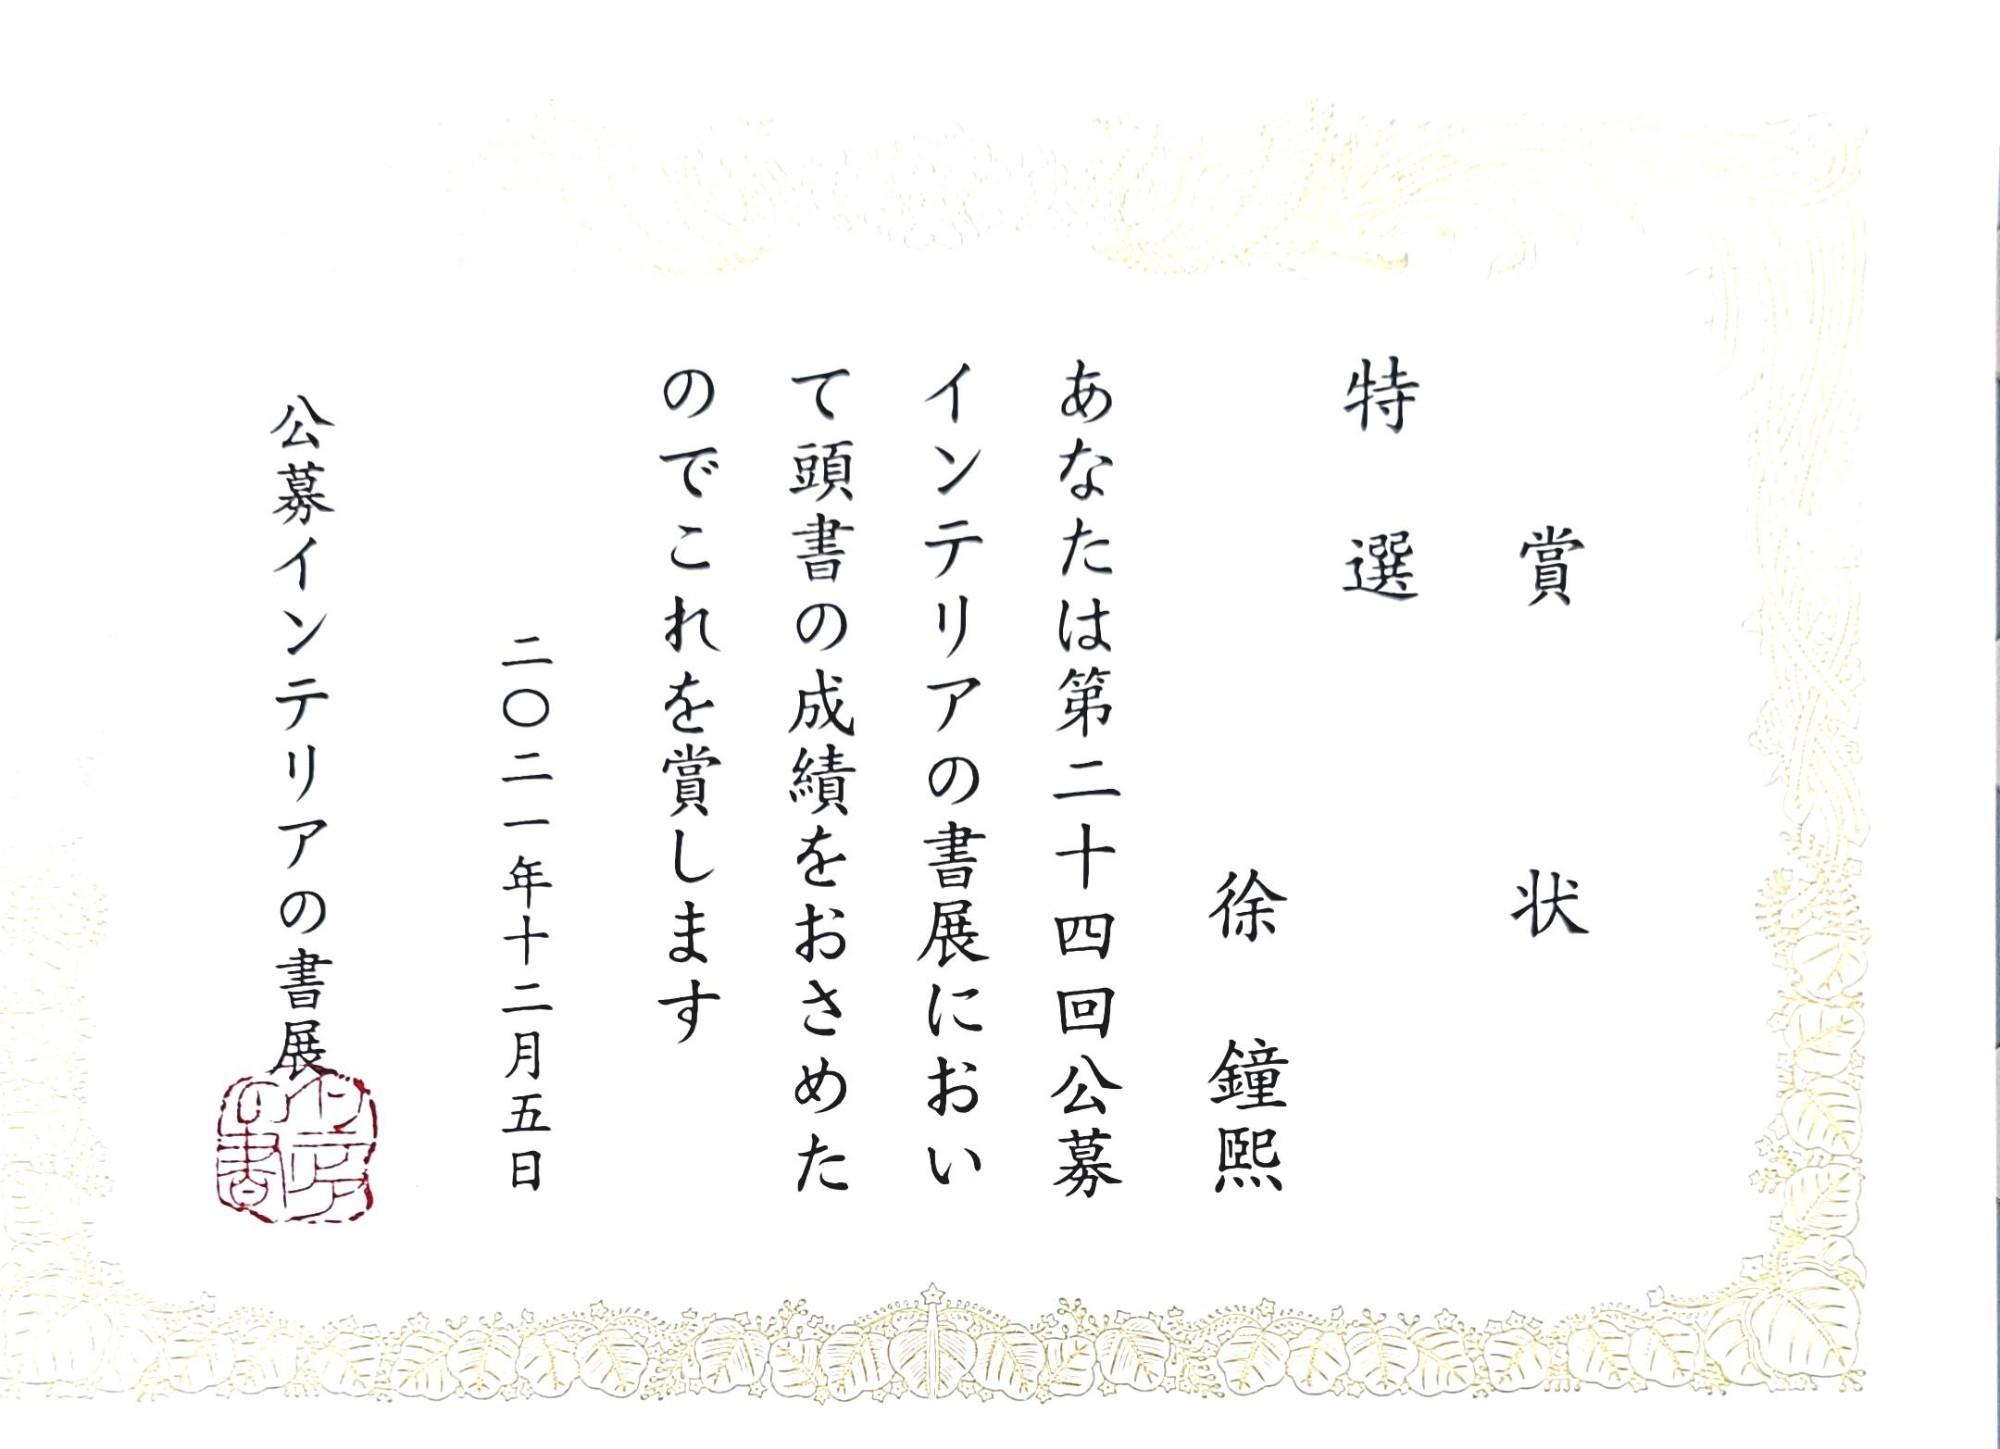 賞状
特選
徐鐘熙
あなたは第二十四回公募
インテリアの書展におい
て頭書の成績をおさめた
のでこれを賞します
二〇二一年十二月五日
公募インテリアの書展